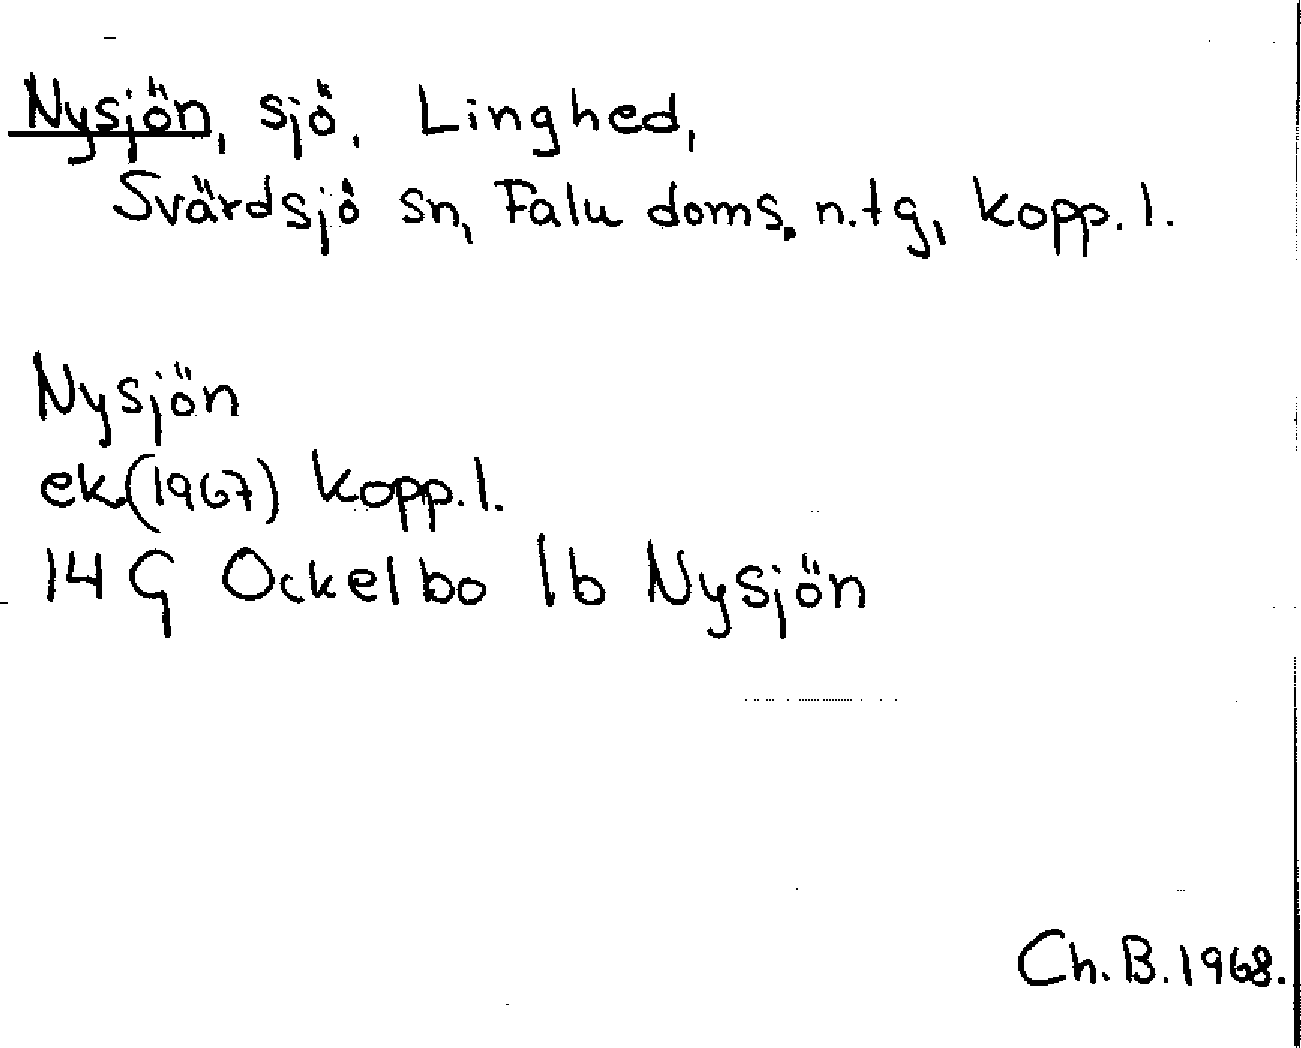 Nysjön, sjö, Linghed,
Svärdsjö sn, Falu doms. n.tg, kopp. l.
Nysjön
ek (1967) kopp. l.
14 G Ockelbo 1b Nysjön
Ch. B. 1968.